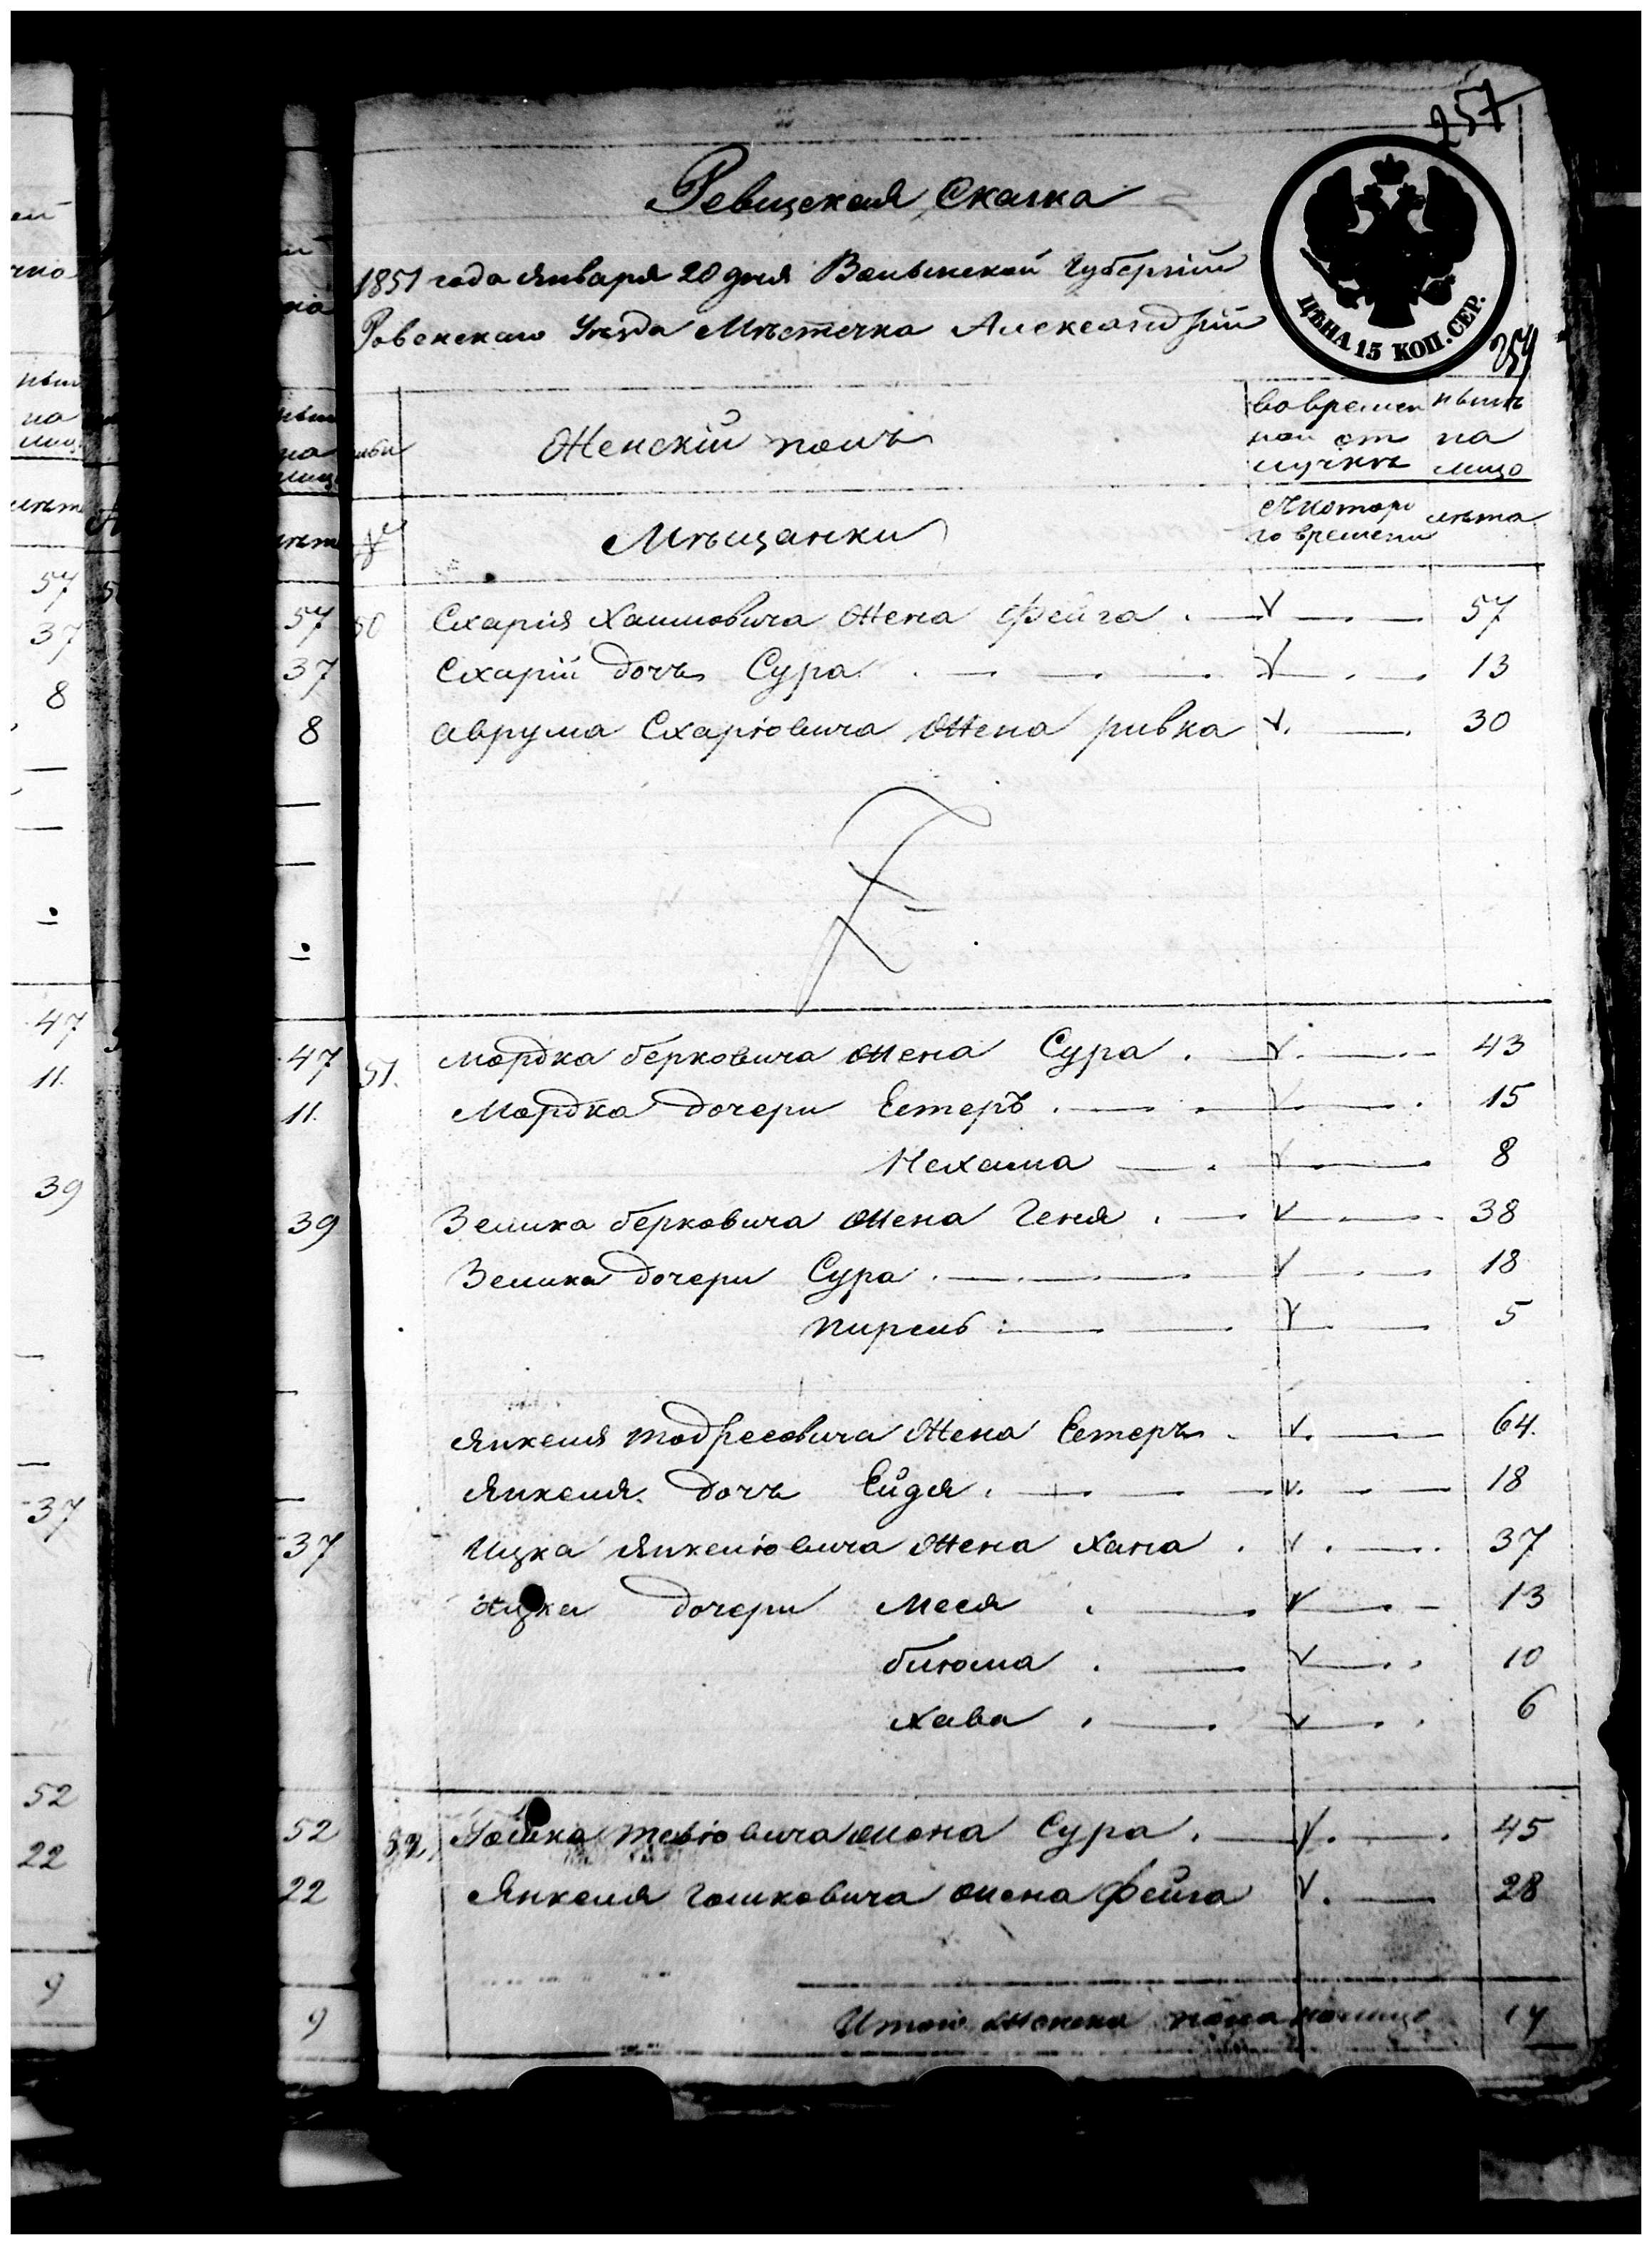 257
Ревизская Сказка
1851 года Января 20 дня Волынской Губернии
Ровенского Уезда Мѣстечка Александрии
ЦѢНА 15 КОП. СЕР.
254
Женскій полъ
во времен нынѣ
ной от на
лучкѣ лицо
Мѣщанки
съ которо лѣта
го времени
50 Схарія Хаимовича жена Фейга 57
Схарій дочъ Сура 13
Аврума Схаріовича жена ривка 30
51. Мордка берковича жена Сура 43
Мордка дочери Естеръ 15
Нехама 8
Зелика берковича жена Геня 38
Зелика дочери Сура 18
пирель 5
Янкеля тодресовича жена Естеръ 64.
Янкеля дочъ Ейдя 18
Ицка Янкеліовича жена Хана 37
Ицка дочери Меся 13
блюма 10
Хава 6
52, Гошка тевіовича жена Сура 45
Янкеля гошковича жена фейга 28
Итого женска пола налицо 14
57
37
8
47
11.
39
37
52
22
9
57
37
8
47
11.
39
37
52
22
9